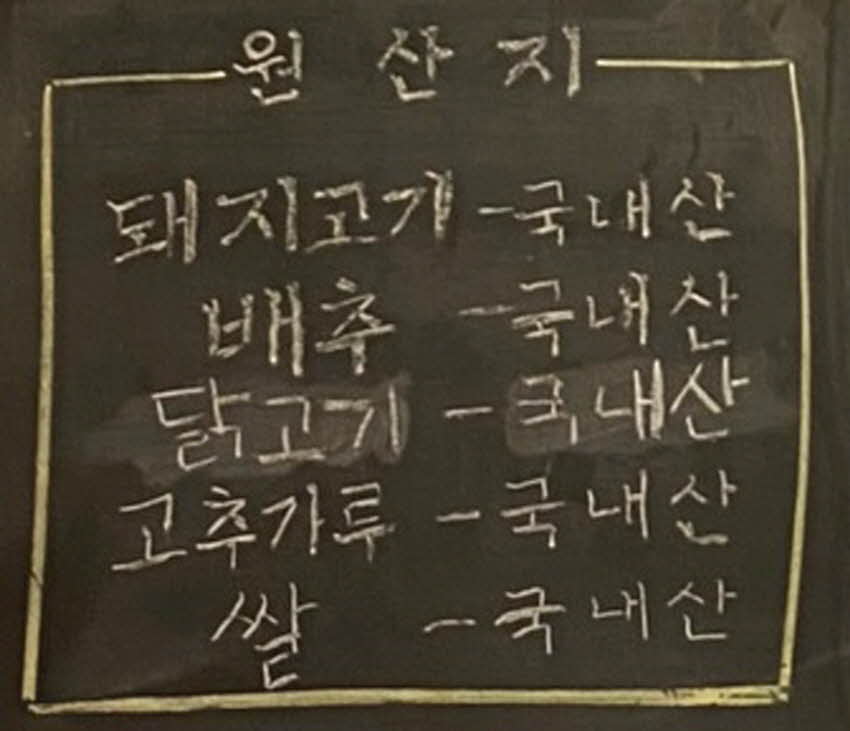 원산지
돼지고기 - 국내산
배추 - 국내산
닭고기 - 국내산
고추가루 - 국내산
쌀 - 국내산